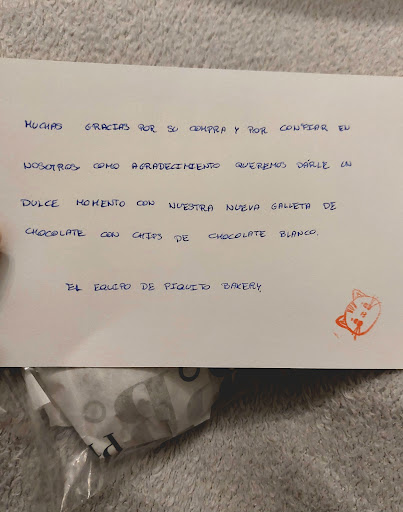 MUCHAS GRACIAS POR SU COMPRA Y POR CONFIAR EN
NOSOTROS, COMO AGRADECIMIENTO QUEREMOS DARLE UN
DULCE MOMENTO CON NUESTRA NUEVA GALLETA DE
CHOCOLATE CON CHIPS DE CHOCOLATE BLANCO.
EL EQUIPO DE PIQUITO BAKERY.